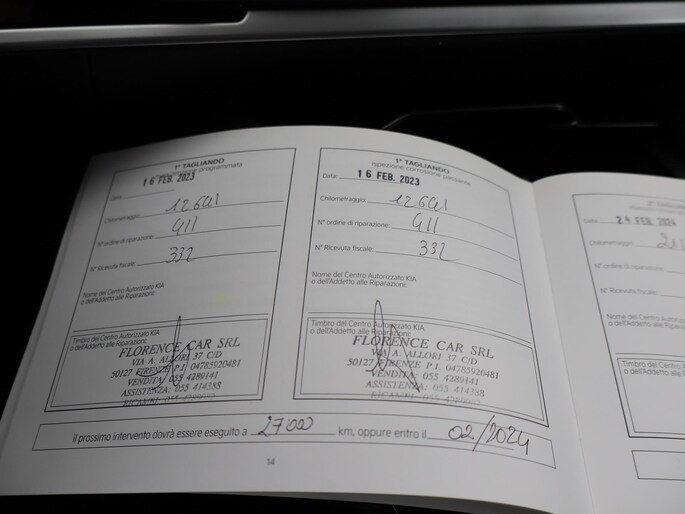 1° TAGLIANDO
programmata
Data: 16 FEB. 2023
Chilometraggio:
N° ordine di riparazione: 411
N° Ricevuta fiscale: 332
Nome del Centro Autorizzato KIA
o dell'Addetto alle Riparazioni:
Timbro del Centro Autorizzato KIA
o dell'Addetto alle Riparazioni:
FLORENCE CAR SRL
VIA A. ALLORI 37 C/D
50127 FIRENZE P.I. 04785920481
VENDITA: 055 4289141
ASSISTENZA: 055 414388
RICAMBI: 055
1° TAGLIANDO
Ispezione corrosione passante
Data: 16 FEB. 2023
Chilometraggio:
N° ordine di riparazione: 411
N° Ricevuta fiscale: 332
Nome del Centro Autorizzato KIA
o dell'Addetto alle Riparazioni:
Timbro del Centro Autorizzato KIA
o dell'Addetto alle Riparazioni:
FLORENCE CAR SRL
VIA A. ALLORI 37 C/D
50127 FIRENZE P.I. 04785920481
VENDITA: 055 4289141
ASSISTENZA: 055 414388
il prossimo intervento dovrà essere eseguito a 27000 km, oppure entro il 02/2024
14
2° TAGLIANDO
Data:
Chilometraggio:
N° ordine di
N° Ricevuta fiscale:
Nome del
o dell'Addetto
Timbro del Centro
o dell'Addetto